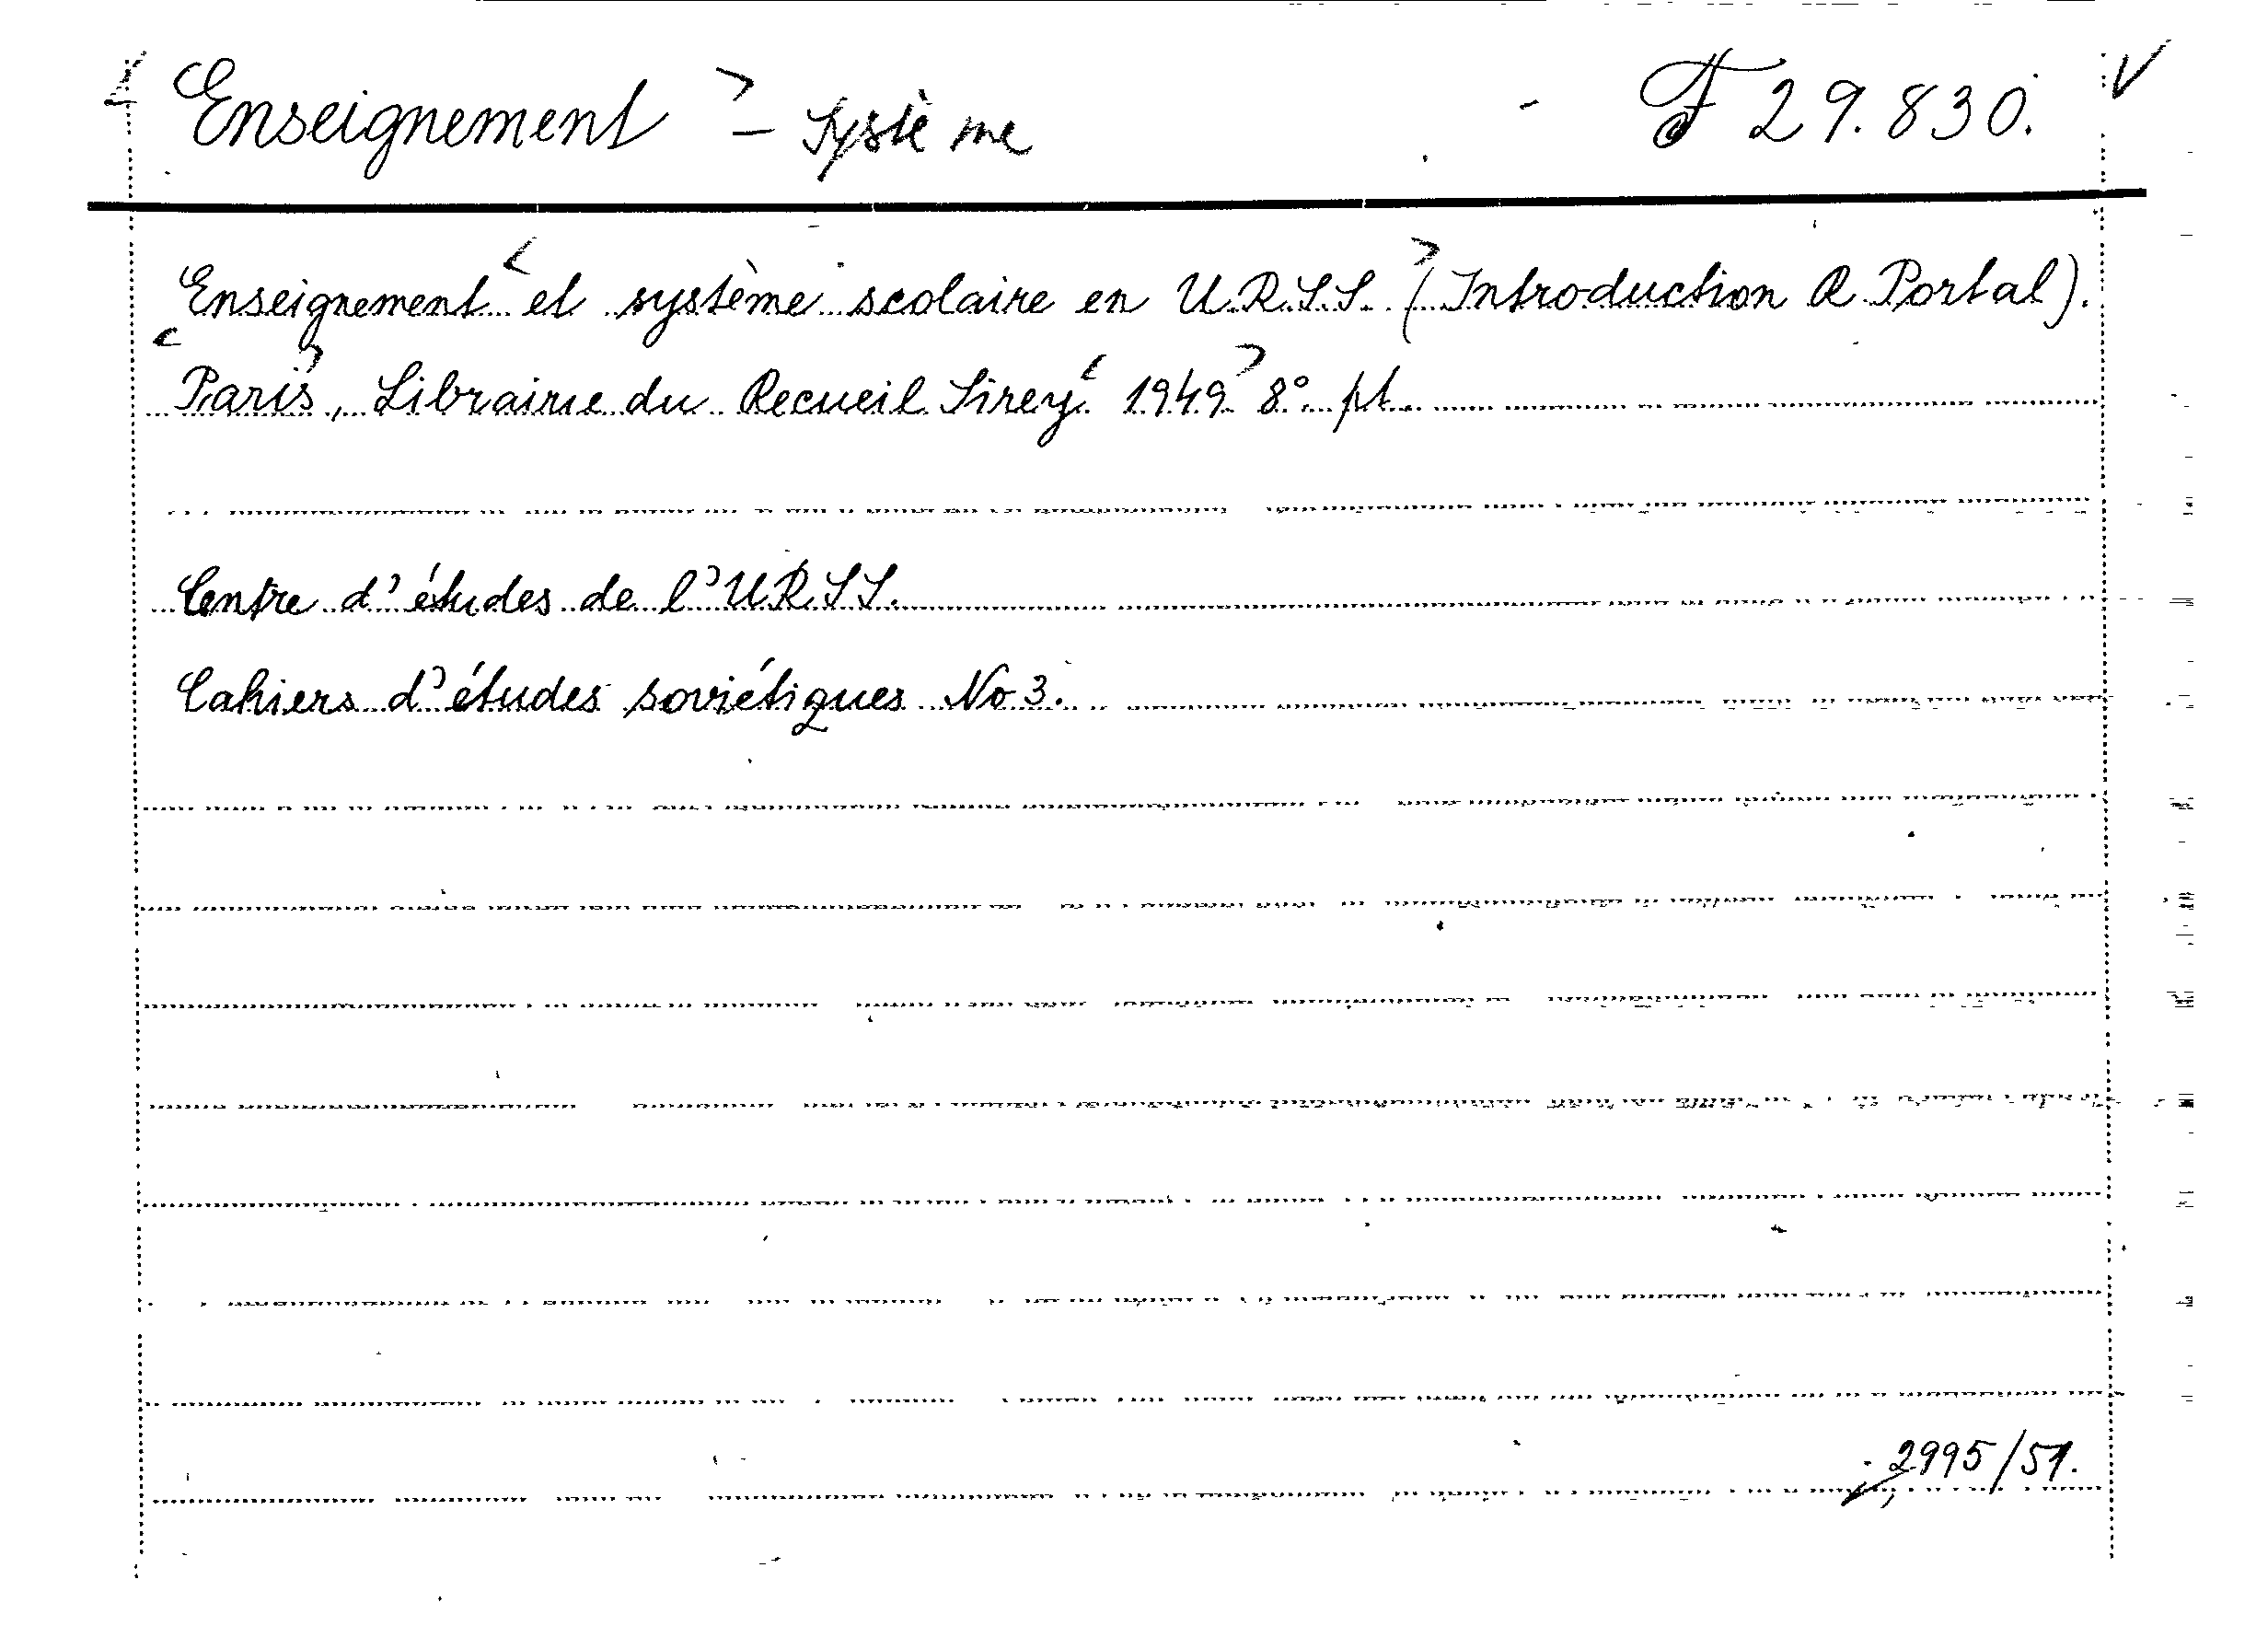 Enseignement - Système F 29.830.
Enseignement et système scolaire en U.R.S.S. (Introduction R. Portal).
Paris, Librairie du Recueil Sirey. 1949 8° pt.
Centre d'études de l'U.R.S.S.
Cahiers d'études soviétiques No 3.
2995/51.